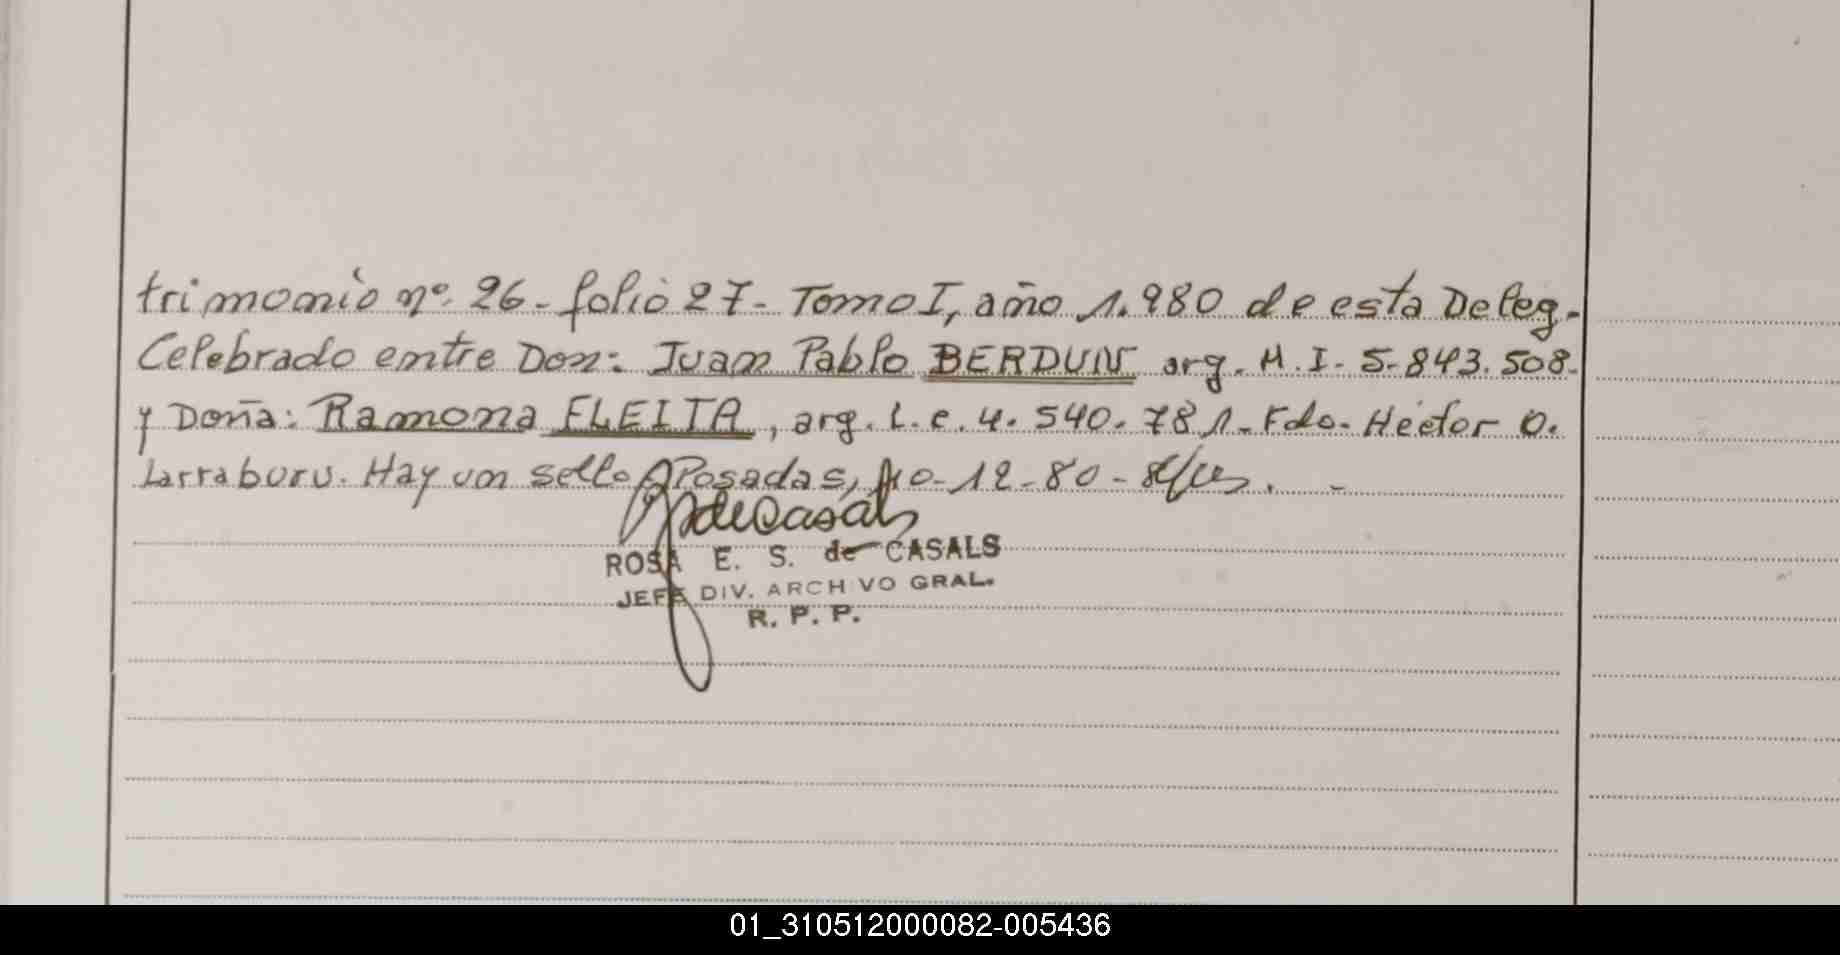 trimonio nº. 26- folio 27- Tomo I, año 1.980 de esta Deleg-
Celebrado entre Don: Juan Pablo BERDUN arg. M.I- 5-843.508-
y Doña: Ramona FLEITA, arg. L.C. 4. 540. 781- Fdo- Héctor O.
Larraburu. Hay un sello Posadas, 10-12-80-
de Casals
ROSA E. S. de CASALS
JEFE DIV. ARCHIVO GRAL.
R. P. P.
01_310512000082-005436